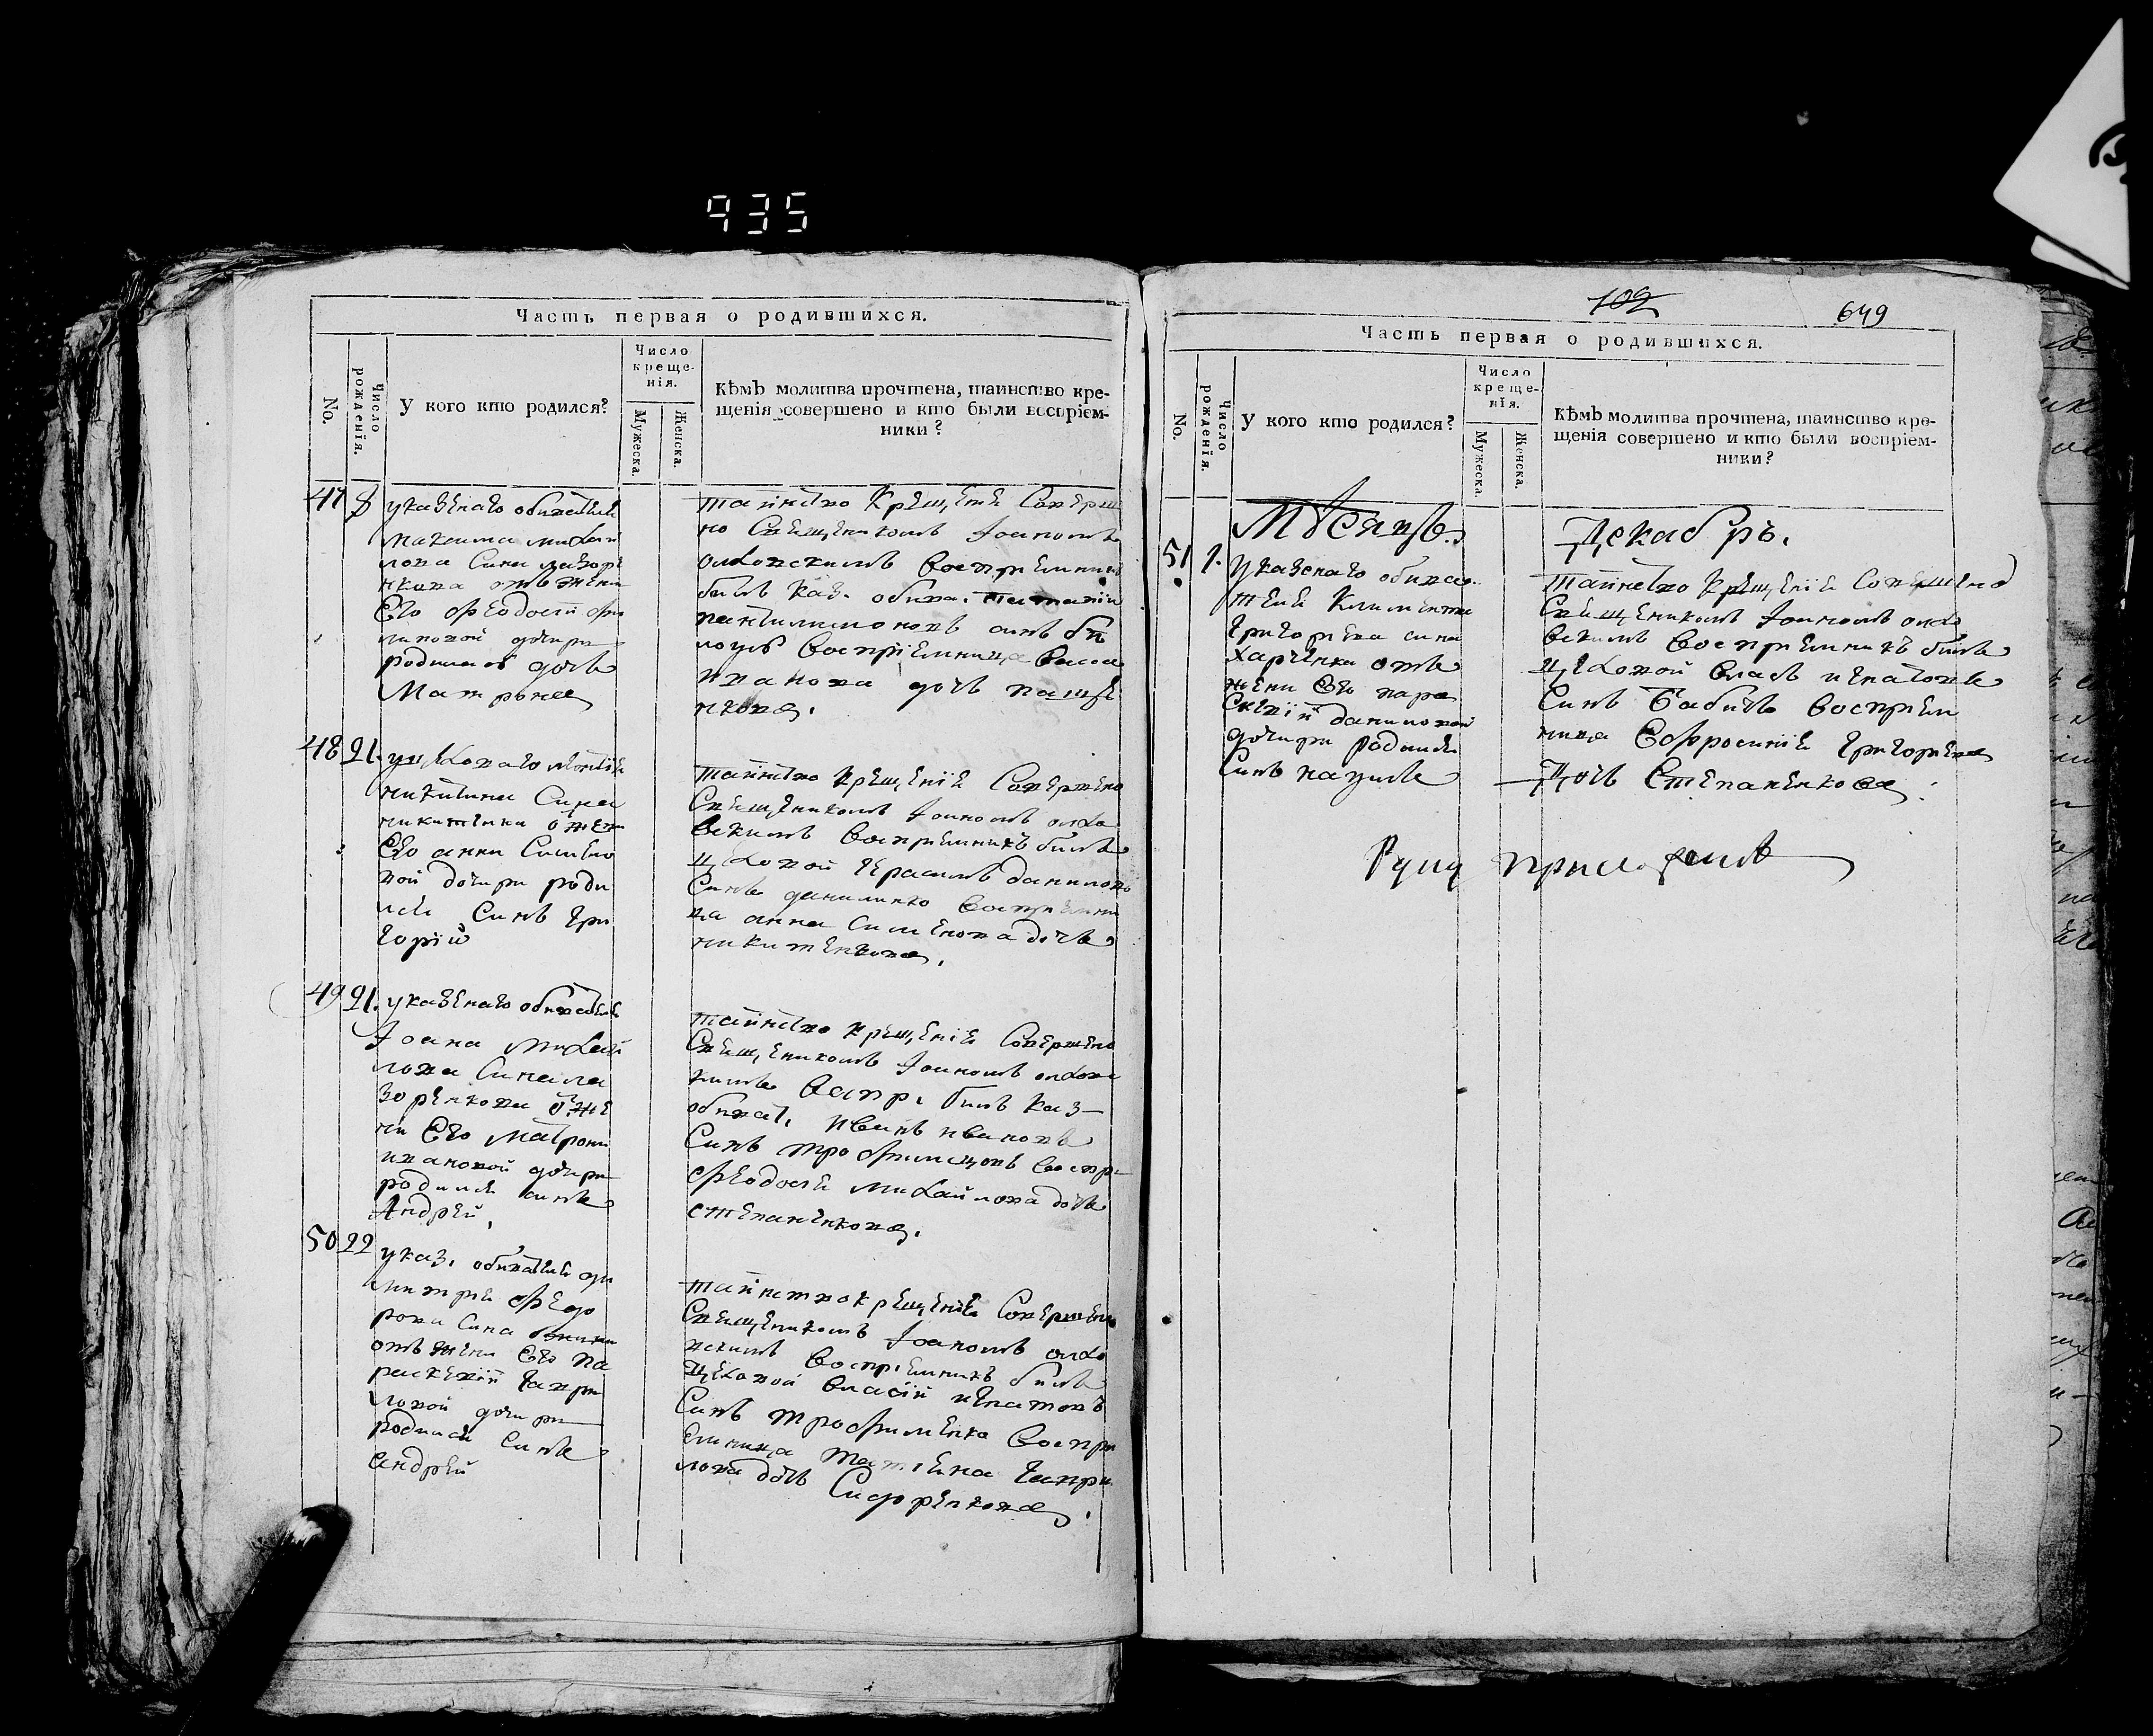 935
Часть первая о родившихся.
No.
Число рожденія.
У кого кто родился?
Число креще-
нія.
Мужеска.
Женска.
Кѣмъ молитва прочтена, таинство кре-
щенія совершено и кто были воспріем-
ники?
47 8 у казенаго обивателя
Максима Михай
лова сина лазоре
нкова отъ жени
Его Феодосїи фи
липовой дочери
родилась дочь
Матрона
таинство Крещенїе Соверше
но Священикомъ Іоаномъ
воспрїемникъ
билъ каз. обива.
пантилимоновъ синъ бѣ
лоусъ воспрїемница
иванова дочь пащѣ
нкова.
48 21. у цеховаго
никитина Сина
никитенка о жен
Его анни Симено
вой дочери роди
лся Синъ Гри
горїй
таинство крещенїе Совершено
Священикомъ Іоаномъ
воспрїемникъ билъ
цеховой Герасимъ данилов
Синъ данилико воспрїемни
ца анна Сименова дочь
никитенкова.
49 21. у казенаго обивателя
Іоана Михай
лова Сина ла
зоренкова о же
ни Его Матрони
ивановой дочери
родился синъ
Андрей.
таинство крещенїе Совершено
Священикомъ Іоаномъ
воспр. билъ каз—
обиват. иванъ ивановъ
Синъ трофимцовъ воспр.
феодосїя михайлова дочь
степаненкова.
50 22 у каз. обивателя ди
митрїя федо
рова Сина
отъ жени Его па
раскевїи гаври
ловой дочери
родился Синъ
андрей
таинство крещенїе Совершено
Священикомъ Іоаномъ
воспрїемникъ билъ
цеховой власїй игнатовъ
Синъ трофименко воспрї
емница татїана гаври
лова дочь Сидоренкова.
102
649
Часть первая о родившихся.
No.
Число рожденія.
У кого кто родился?
Число креще-
нія.
Мужеска.
Женска.
Кѣмъ молитва прочтена, таинство кре-
щенія совершено и кто были воспріем-
ники?
Мѣсяцъ Декабрь.
51 1. У казенаго обива
теля Климентия
Григорїева сина
харченка отъ
жени Его пара
скевїи даниловой
дочери родился
Синъ наумъ
таинство крещенїе Совершено
Священикомъ Іоаномъ
воспрїемникъ билъ
цеховой власъ игнатовъ
Синъ Бабичъ воспрїем
ница Евфросинїя григорїева
Дочь Степаненкова.
Руку приложилъ